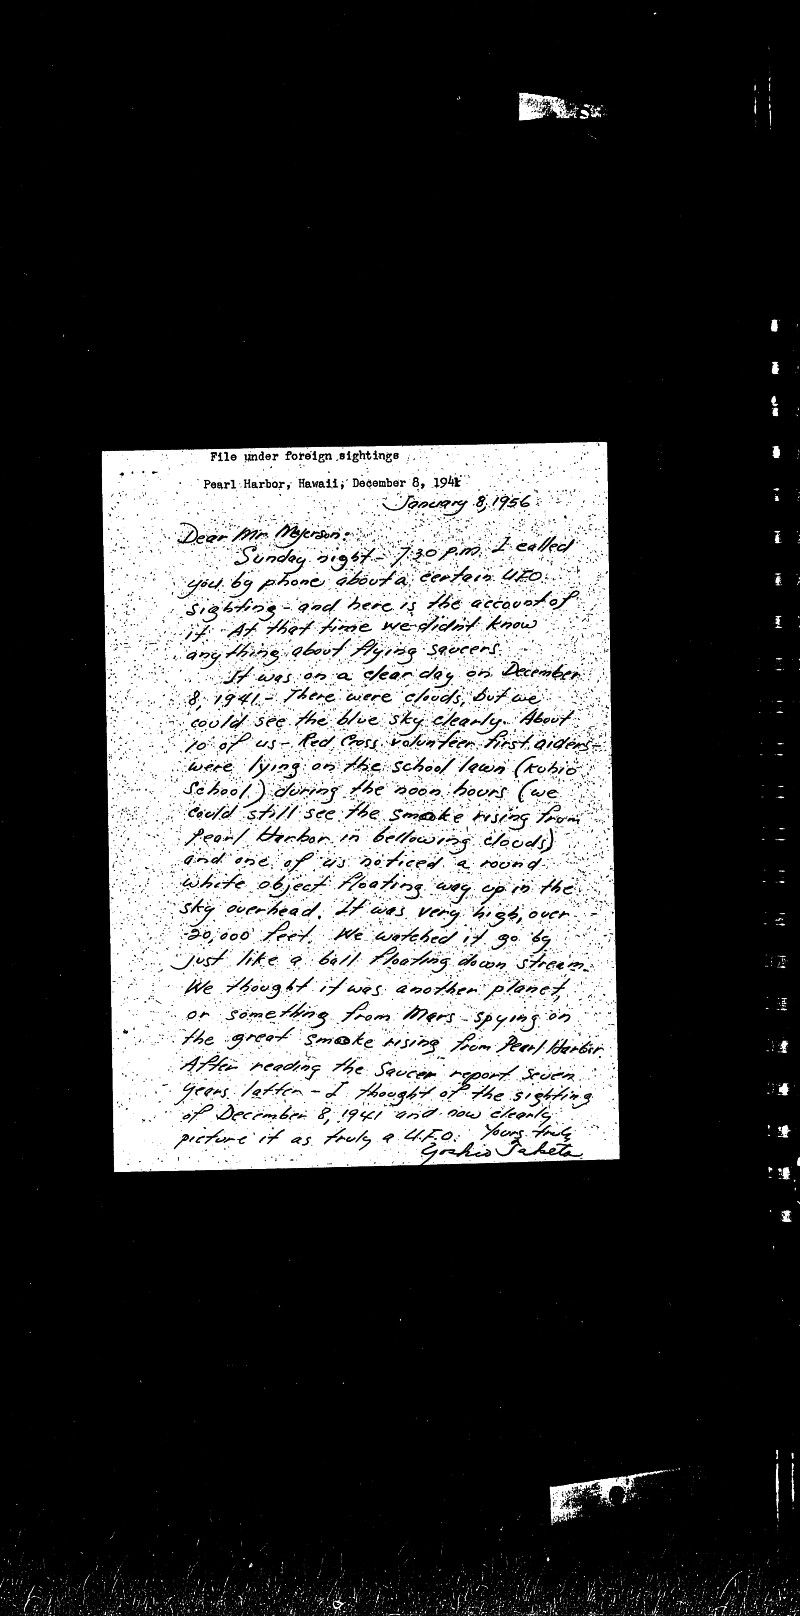 File under foreign sightings
Pearl Harbor, Hawaii, December 8, 1941
January 8, 1956
Dear Mr.
Sunday night - 7:30 p.m. I called
you by phone about a certain UFO
sighting - and here is the account of
it. At that time we didnt know
anything about flying saucers.
It was on a clear day on December
8, 1941 - There were clouds, but we
could see the blue sky clearly. About
10 of us - Red Cross volunteer first aiders -
were lying on the school lawn (Kuhio
School) during the noon hours (we
could still see the smoke rising from
Pearl Harbor in bellowing clouds)
and one of us noticed a round
white object floating way up in the
sky overhead. It was very high, over
20,000 feet. We watched it go by
just like a ball floating down stream.
We thought it was another planet,
or something from Mars spying on
the great smoke rising from Pearl Harbor
After reading the Saucer report seven
years latter - I thought of the sighting
of December 8, 1941 and now clearly
picture it as truly a U.F.O. Yours truly,
Yoshio Taketa